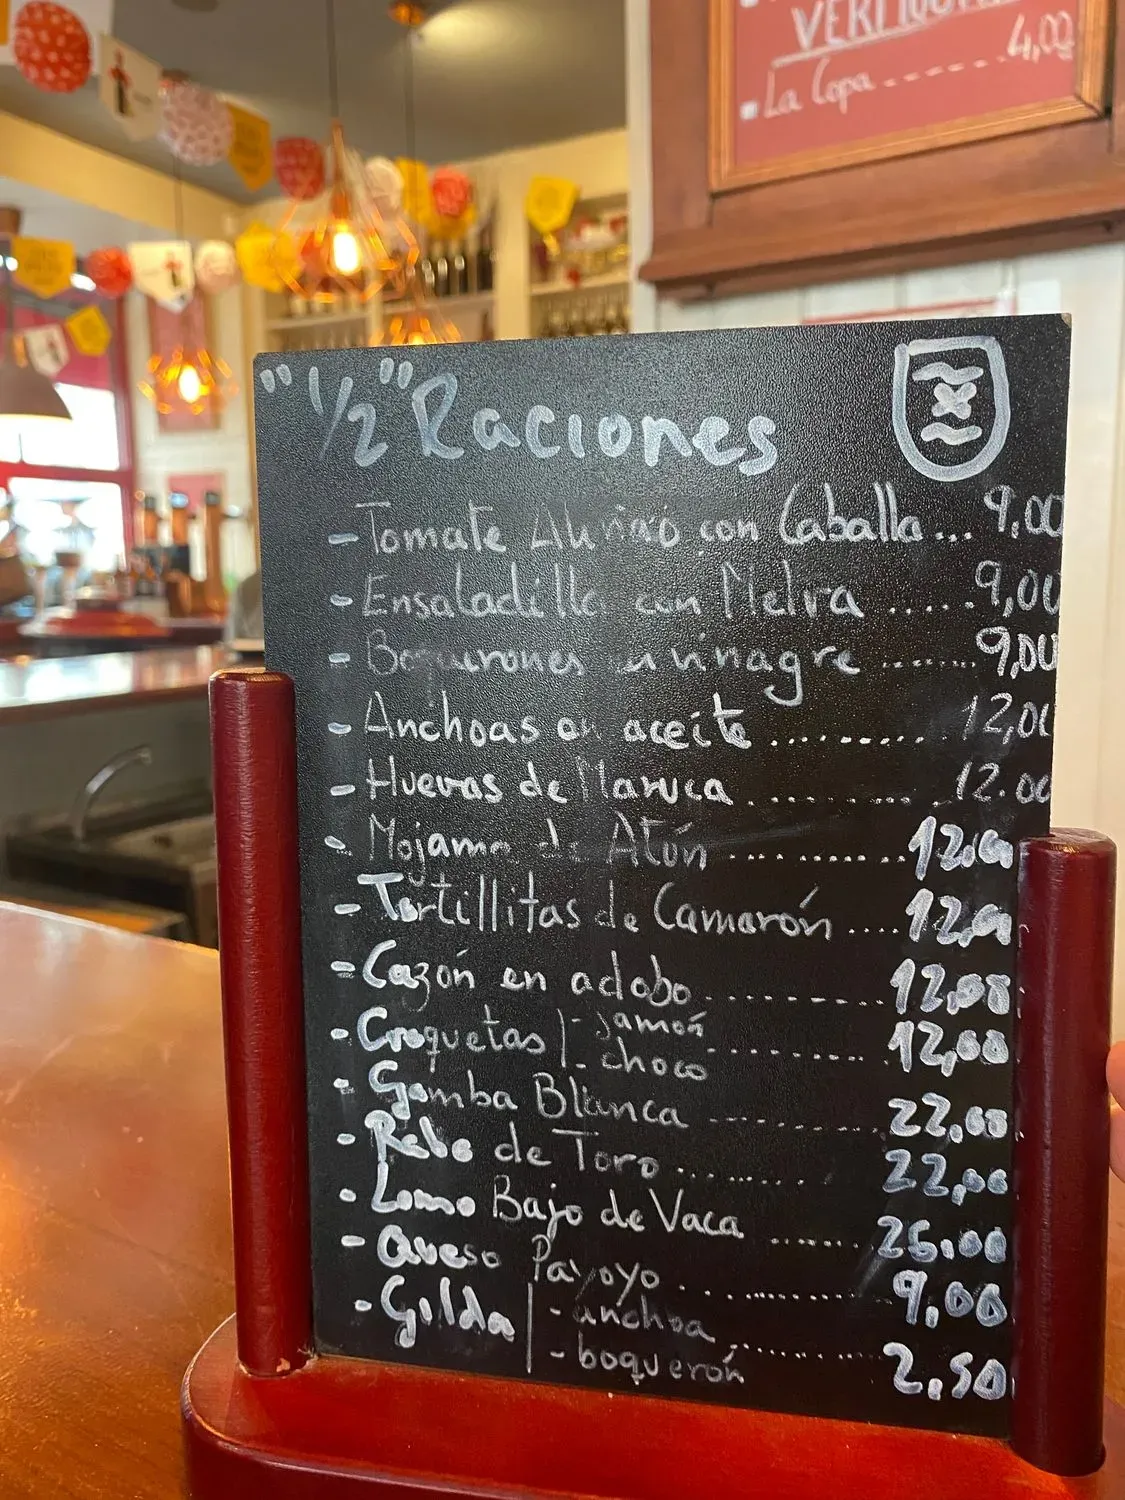 VERMOUTH
La Copa ------- 4,00
"½" Raciones
- Tomate Aliñao con Caballa... 9,00
- Ensaladilla con Melva ...... 9,00
- Boquerones en vinagre ....... 9,00
- Anchoas en aceite .......... 12,00
- Huevas de Maruca ............ 12.00
- Mojama de Atún ............ 12,00
- Tortillitas de Camarón .... 12,00
- Cazón en adobo ............ 12,00
- Croquetas - jamón
- choco ............ 12,00
- Gamba Blanca ............ 22,00
- Rabo de Toro ............ 22,00
- Lomo Bajo de Vaca ....... 26,00
- Queso Payoyo ............ 9,00
- Gilda - anchoa
- boquerón ............ 2,50